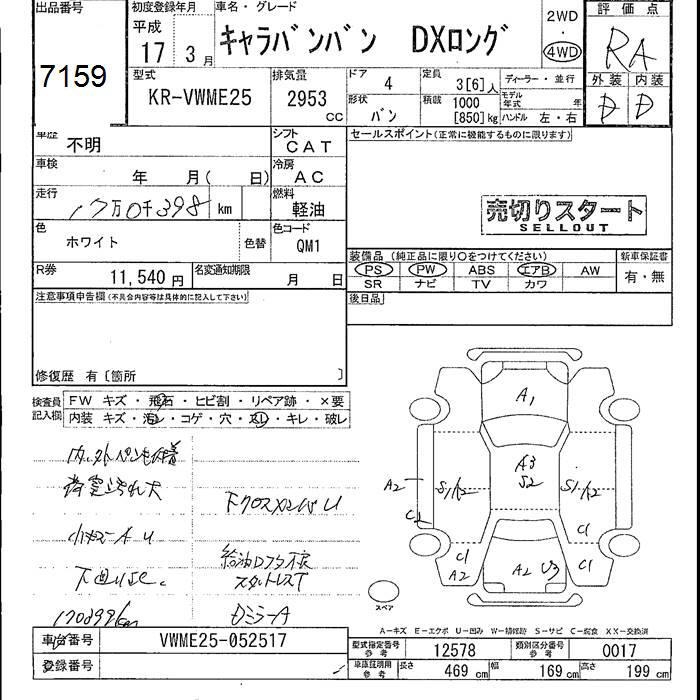 出品番号
7159
初度登録年月
平成
17年 3月
車名・グレード
キャラバンバン DXロング
2WD
・
4WD
評価点
RA
外装 内装
D D
型式
KR-VWME25
排気量
2953 CC
ドア 4
形状 バン
定員 3[6]人
積載 1000 [850]kg
ディーラー・並行
モデル年式 年
ハンドル 左・右
車歴 不明
シフト CAT
車検 年 月( 日)
冷房 AC
走行 17万0千398 km
燃料 軽油
色 ホワイト 色替
色コード QM1
R券 11,540円
名変通知期限 月 日
セールスポイント(正常に機能するものに限ります)
売切りスタート
SELLOUT
装備品(純正品に限り○をつけてください)
PS PW ABS エアB AW
SR ナビ TV カワ
新車保証書
有・無
後日品
注意事項申告欄(不具合内容等は具体的に記入して下さい)
修復歴 有〔箇所 〕
検査員記入欄
FW キズ・飛石・ヒビ割・リペア跡・×要
内装 キズ・汚レ・コゲ・穴・スレ・キレ・破レ
下クロスメンバU
下回りサビ
170399km
DミラーA
A1
A3
S2
S1 A2
S1 A2
A2
C1
C1
A2
A2 U3
C1
C1
スペア
A-キズ E-エクボ U-凹み W-補修跡 S-サビ C-腐食 XX-交換済
車台番号 VWME25-052517
登録番号
型式指定番号 参考 12578
類別区分番号 参考 0017
車庫証明用 参考 長さ 469cm 幅 169cm 高さ 199cm